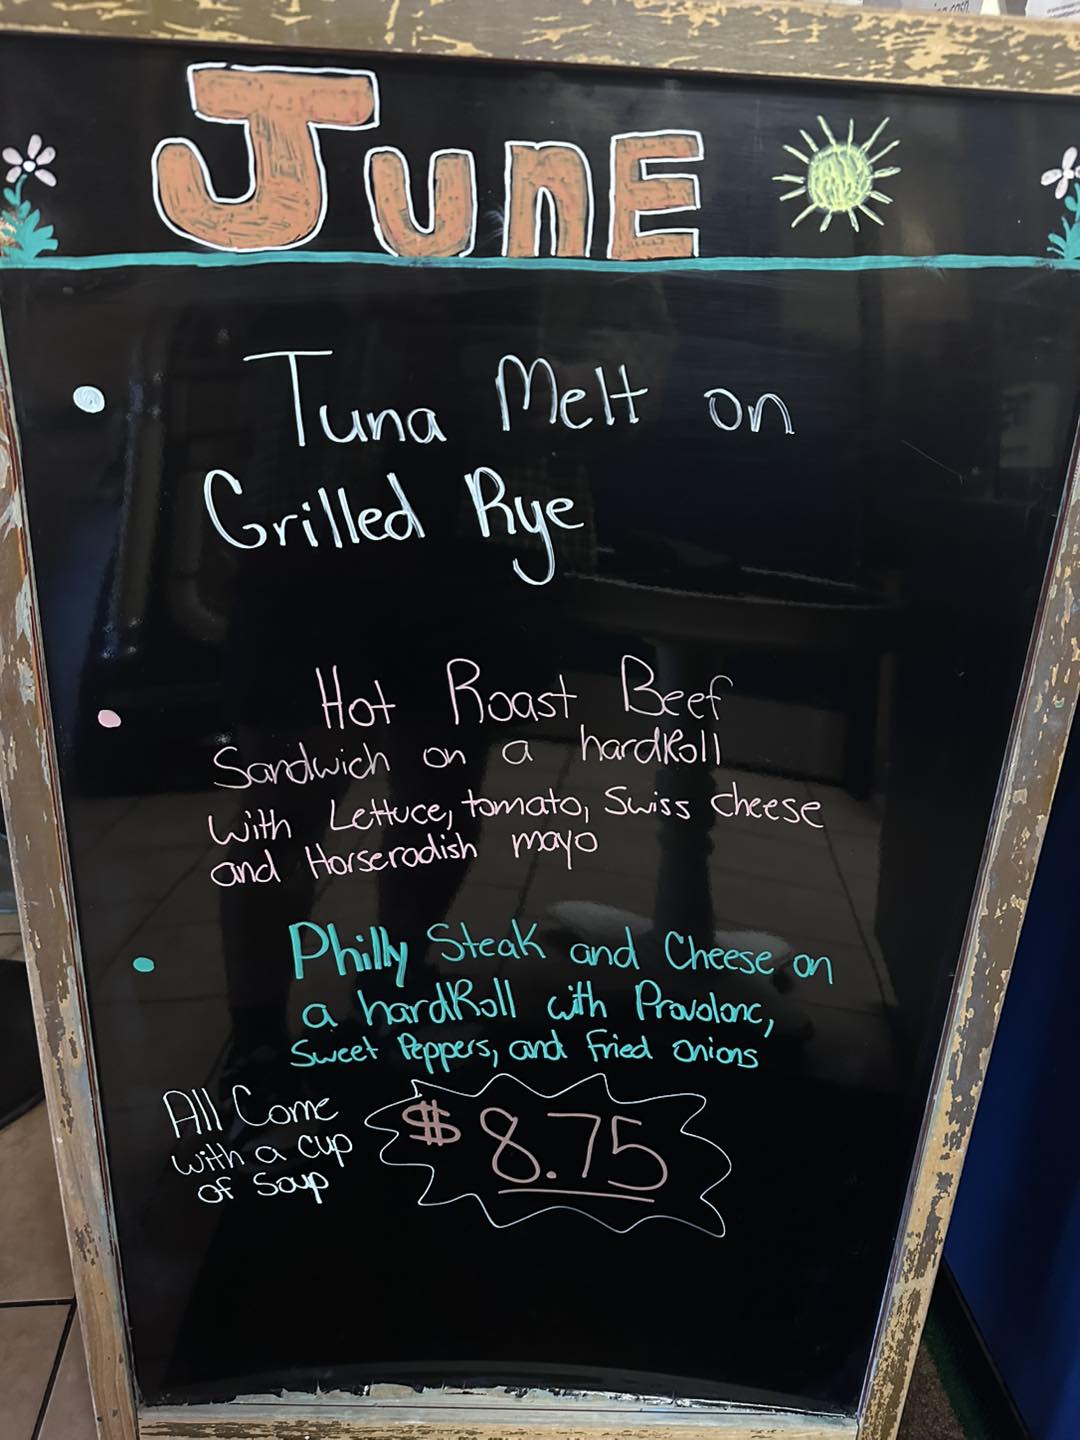 JUNE
• Tuna Melt on
Grilled Rye
• Hot Roast Beef
Sandwich on a hardRoll
with Lettuce, tomato, Swiss cheese
and Horseradish mayo
• Philly Steak and Cheese on
a hardRoll with Provolone,
Sweet Peppers, and fried onions
All Come
with a cup
of Soup
$8.75